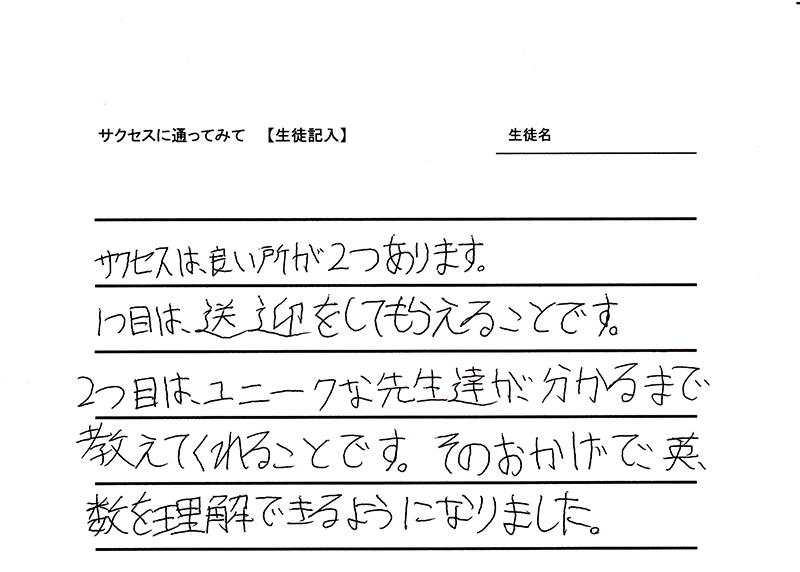 サクセスに通ってみて 【生徒記入】 生徒名
サクセスは、良い所が2つあります。
1つ目は、送迎をしてもらえることです。
2つ目は、ユニークな先生達が、分かるまで
教えてくれることです。そのおかげで、英、
数を理解できるようになりました。